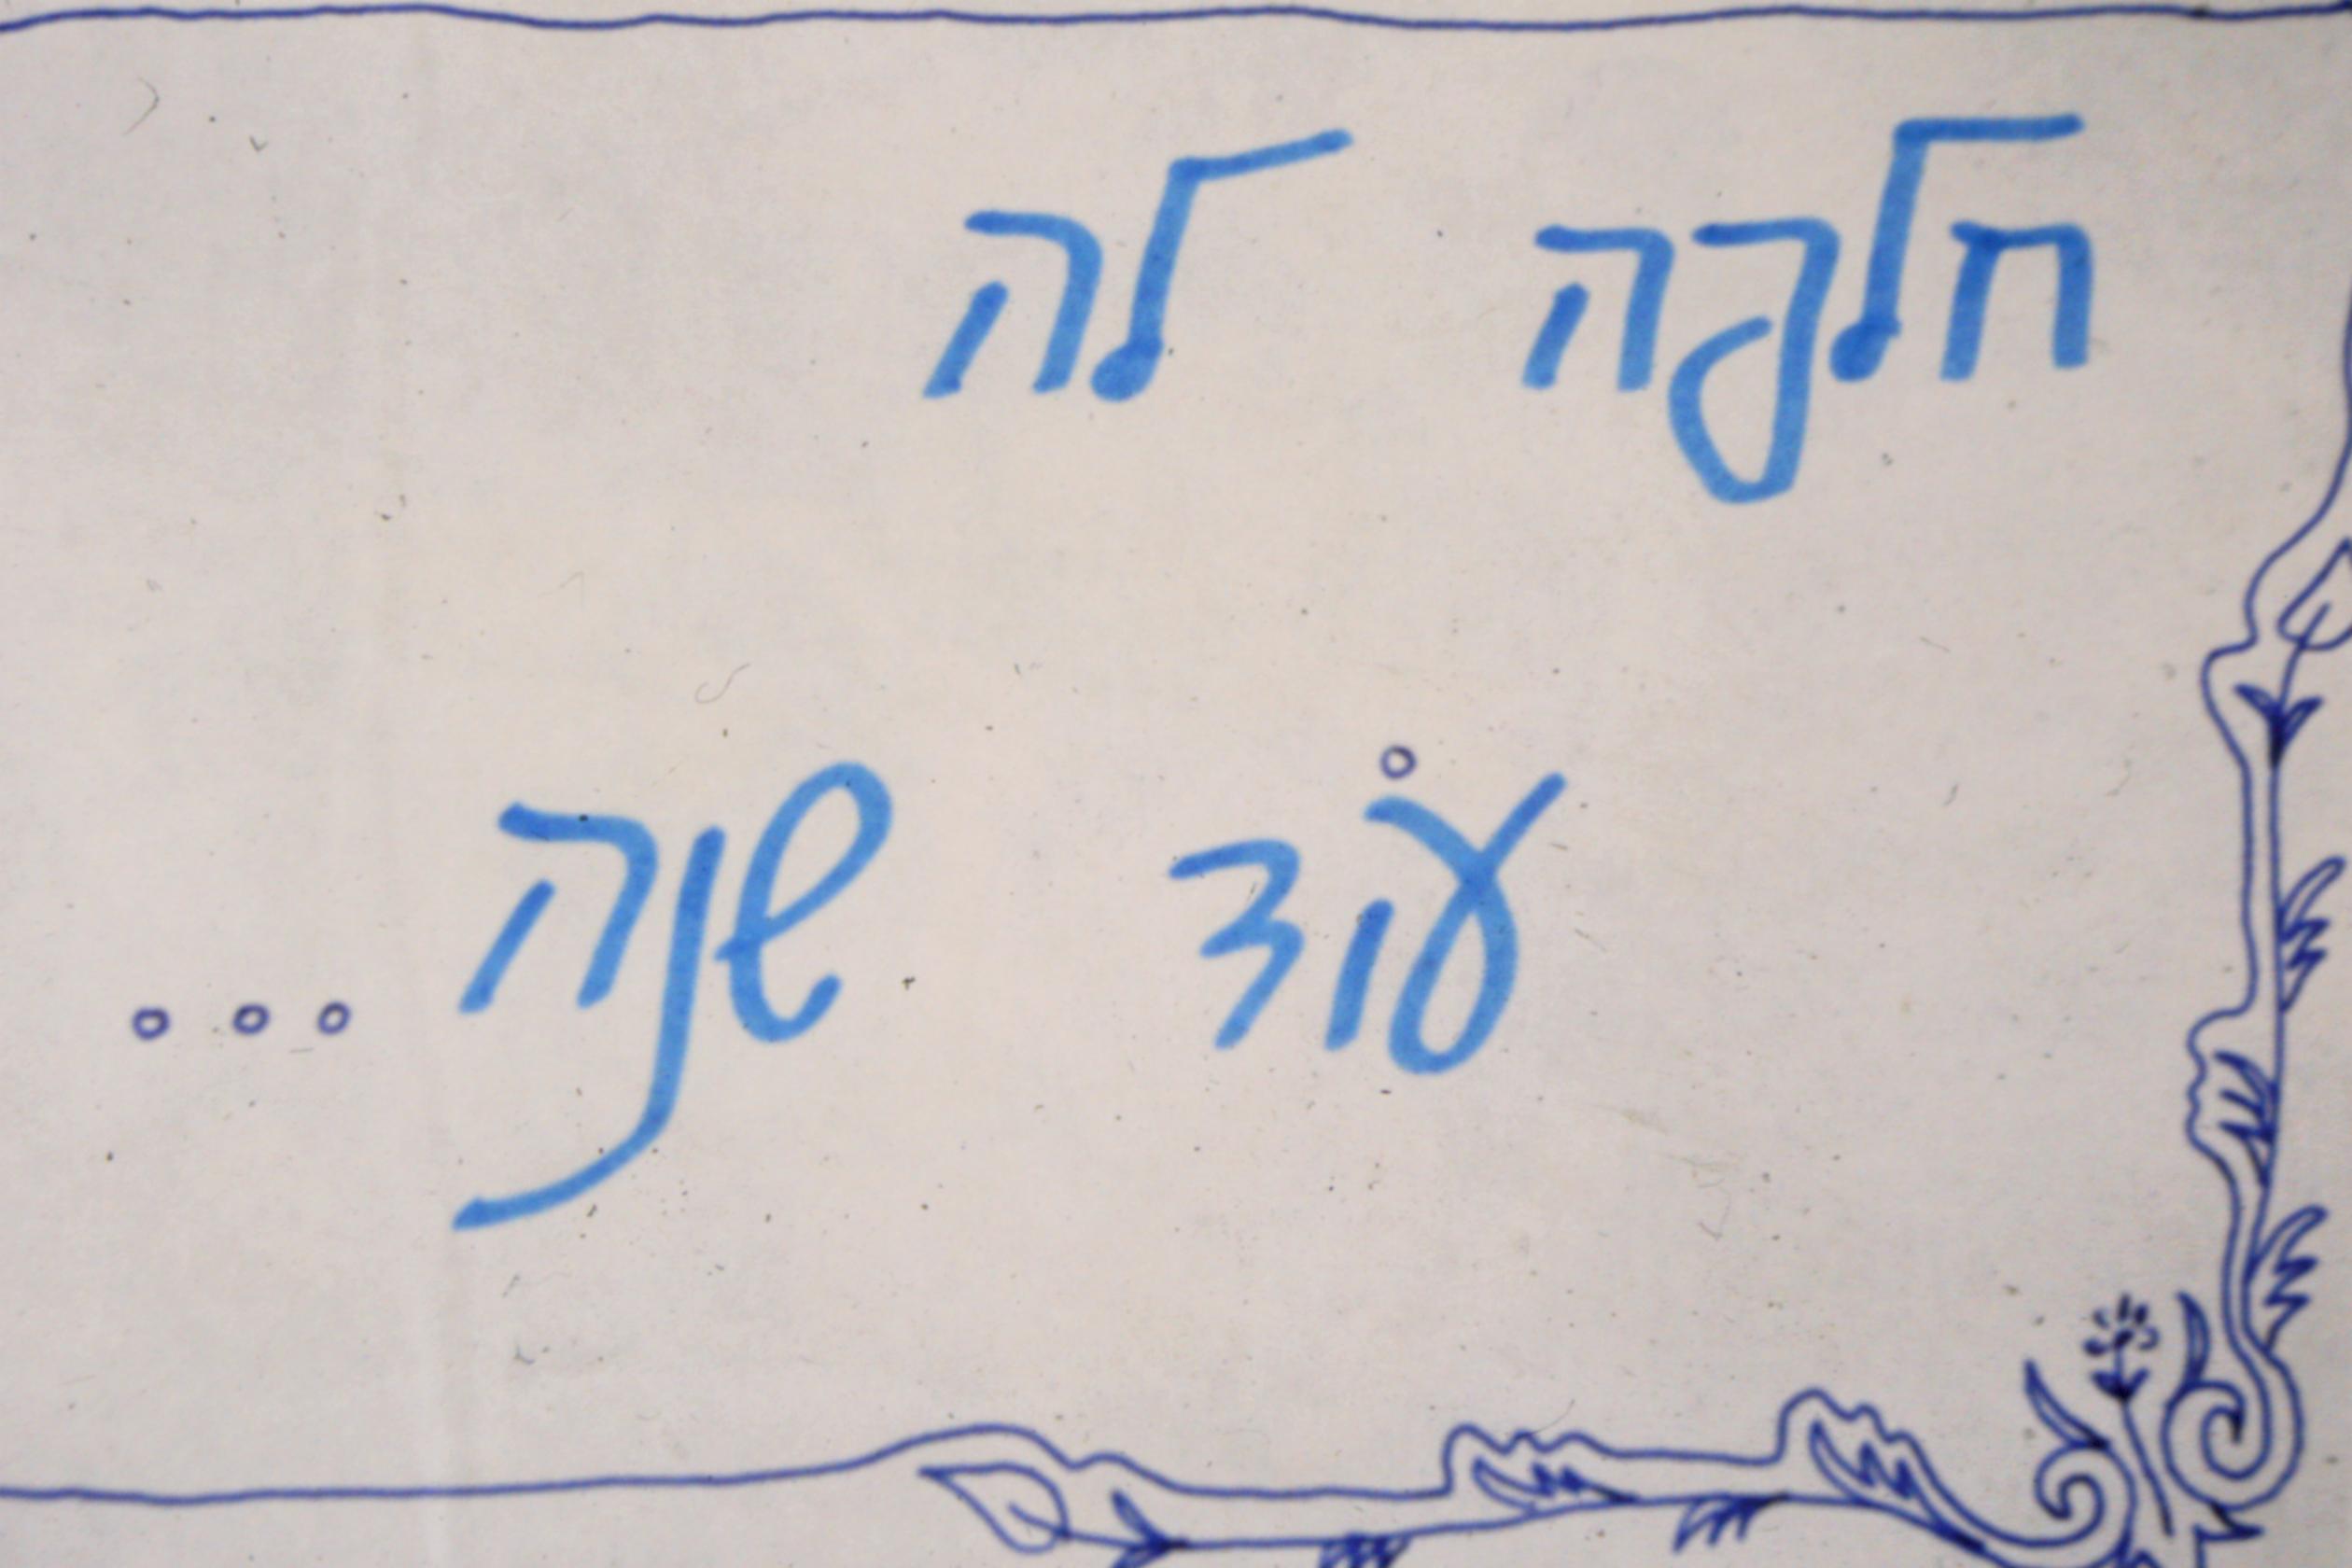 חלפה לה
עוֹד שנה ...